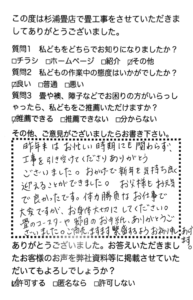 この度は杉浦畳店で畳工事をさせていただきま
してありがとうございました。
質問1 私どもをどちらでお知りになりましたか？
□チラシ □ホームページ □紹介 ☑その他
質問2 私どもの作業中の態度はいかがでしたか？
☑良い □普通 □悪い
質問3 畳や襖、障子などでお困りの方がいらっし
ゃったら、私どもをご推薦いただけますか？
☑推薦できる □推薦できない □分からない
その他、ご意見がございましたらお書き下さい。
昨年末はお忙しい時期にも関わらず、
工事を引き受けてくださりありがとう
ございました。おかげで新年を気持ち良く
迎えることができました。お父様もお元気
で良かったです。体の勝負なお仕事で
大変ですが、お身体大切にしてください。
畳のコースターや毎日のお手紙、ありがとうご
ざいました。
ありがとうございました。お答えいただきまし
たお客様のお声を弊社資料等に掲載させていた
だいてもよろしでしょうか？
☑許可する □匿名なら □許可しない